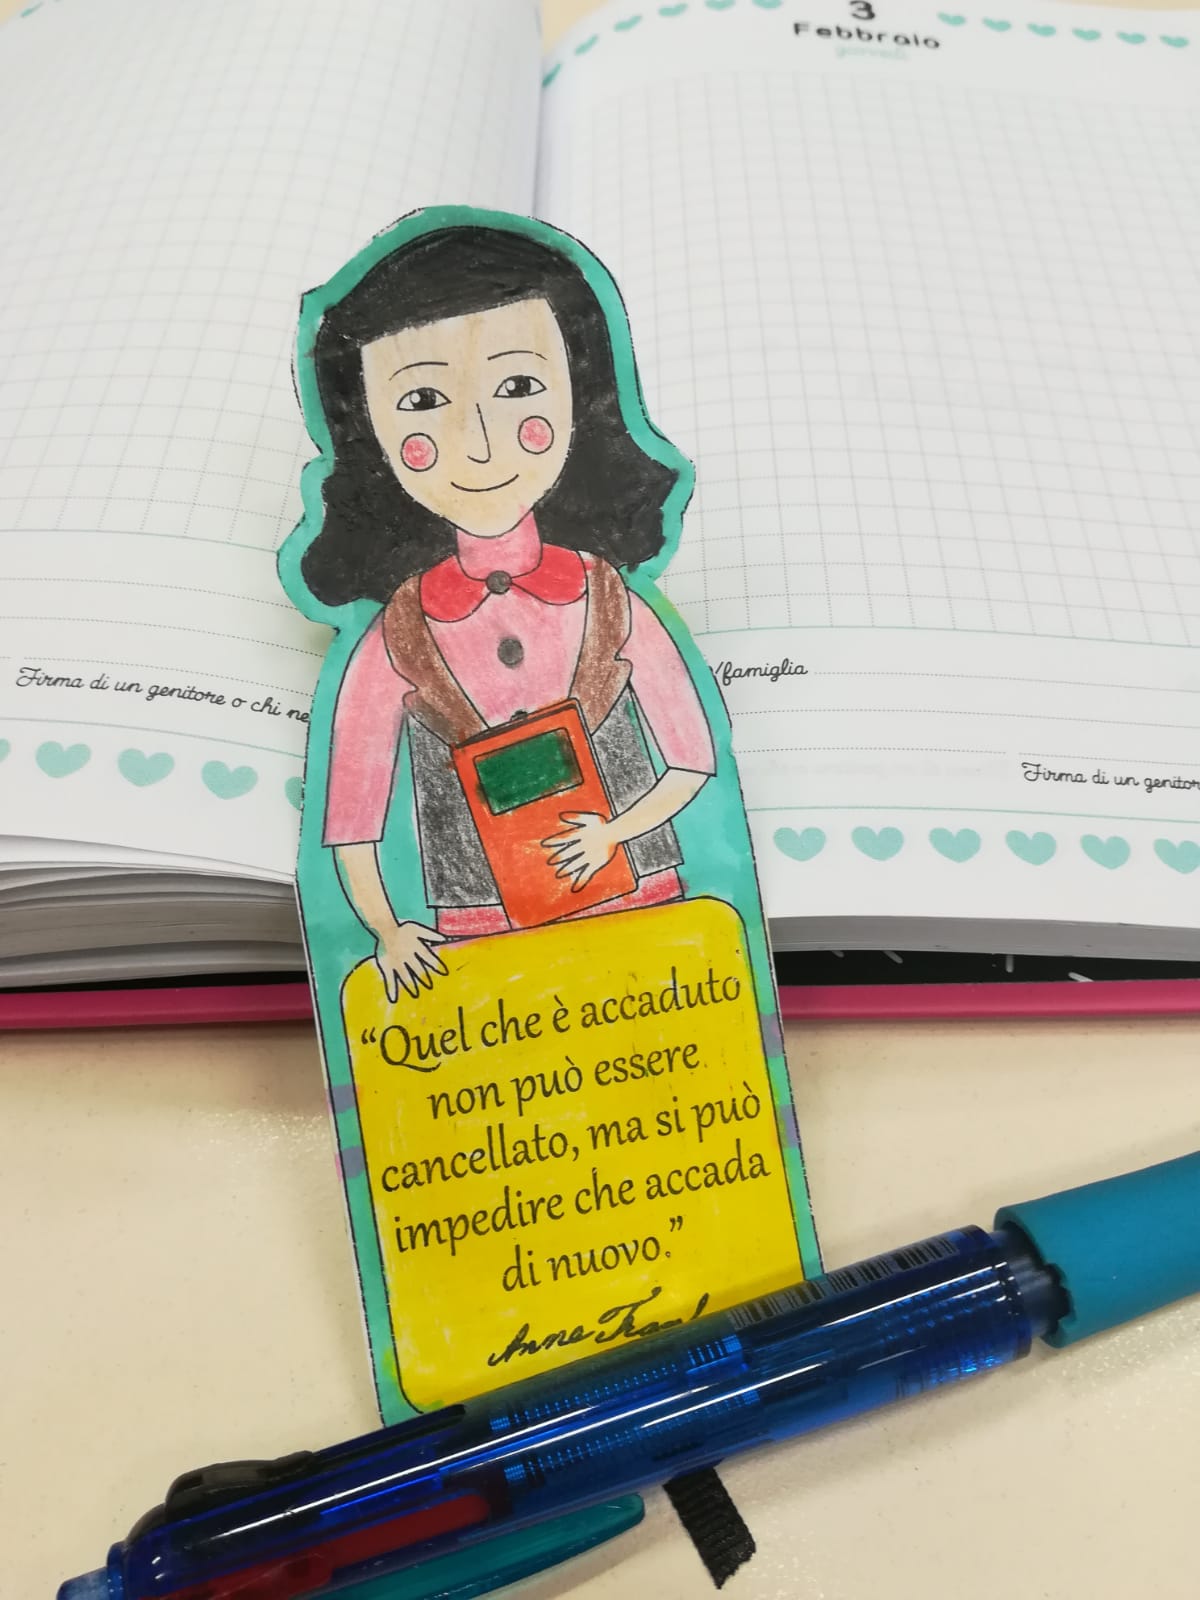 3
Febbraio
giovedì
Firma di un genitore o chi ne
/famiglia
Firma di un genitor
“Quel che è accaduto
non può essere
cancellato, ma si può
impedire che accada
di nuovo.”
Anne Frank